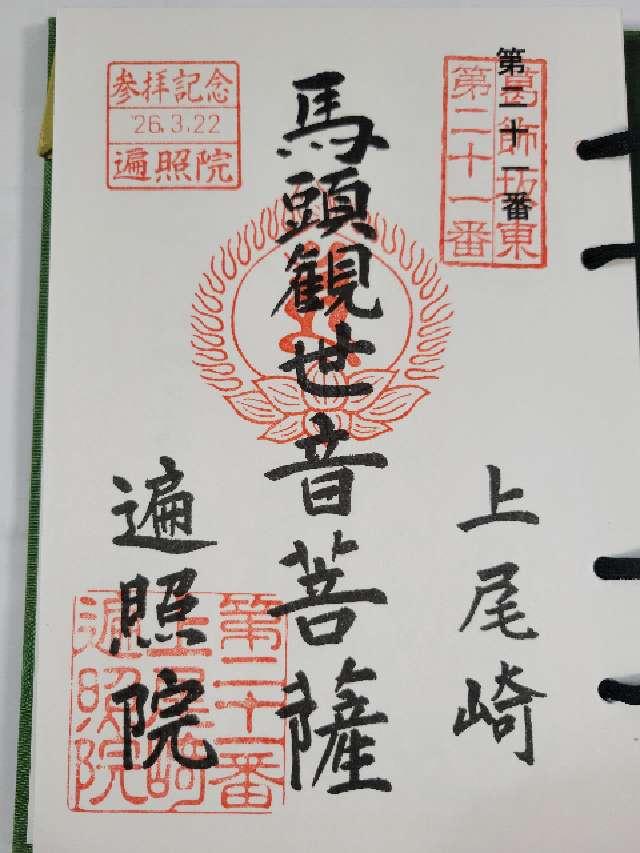 第二十一番
葛飾坂東
第二十一番
上尾崎
馬頭観世音菩薩
参拝記念
'26.3.22
遍照院
遍照院
第二十一番
上尾崎
遍照院